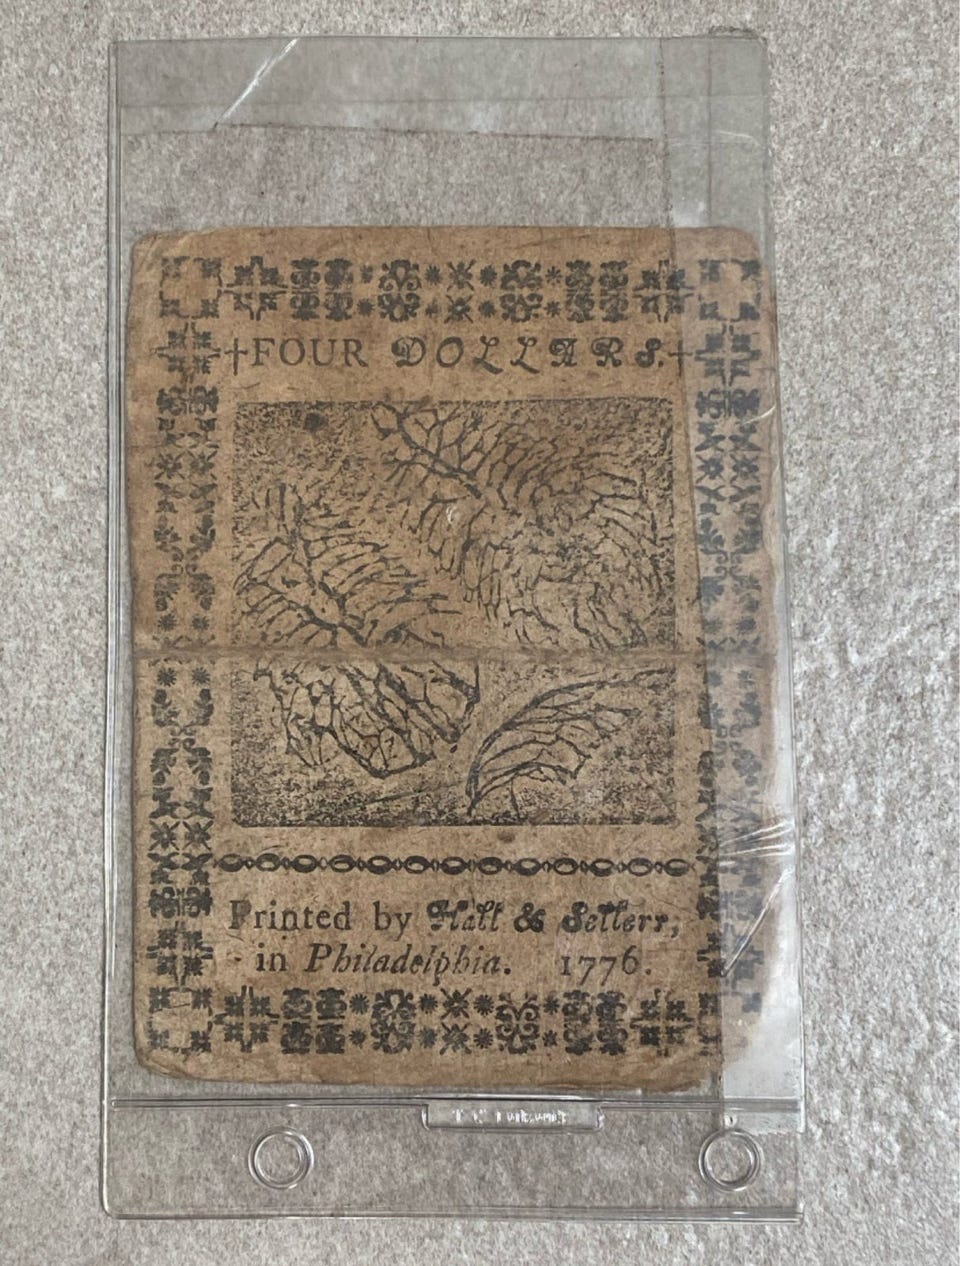 †FOUR DOLLARS.†
Printed by Hall & Sellers,
in Philadelphia. 1776.